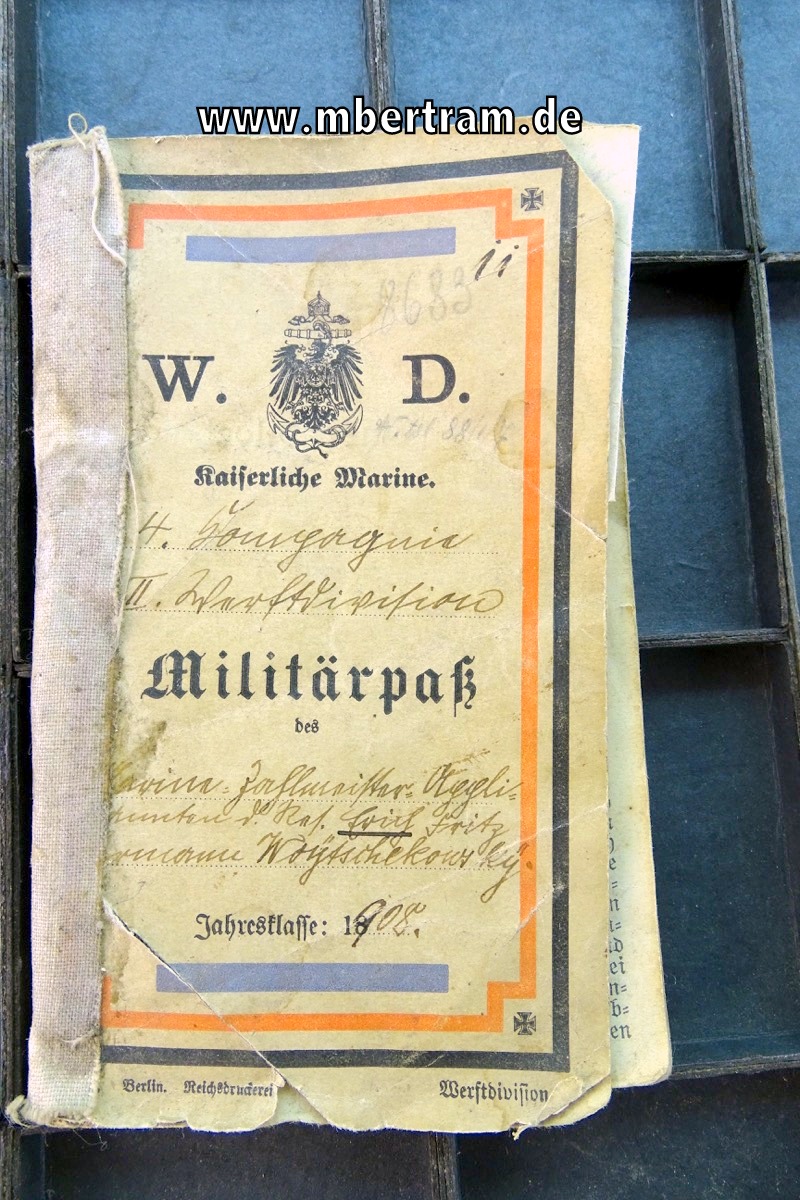 www.mbertram.de
ii
8683
W. D.
Kaiserliche Marine.
4. Compagnie
II. Werftdivision
Militärpaß
des
arine-Zahlmeister-Appli-
annten d. Res. Erich Fritz
ermann Woÿtschekowsky.
Jahresklasse: 1908.
Berlin. Reichsdruckerei
Werftdivision
ei
n=
b=
en